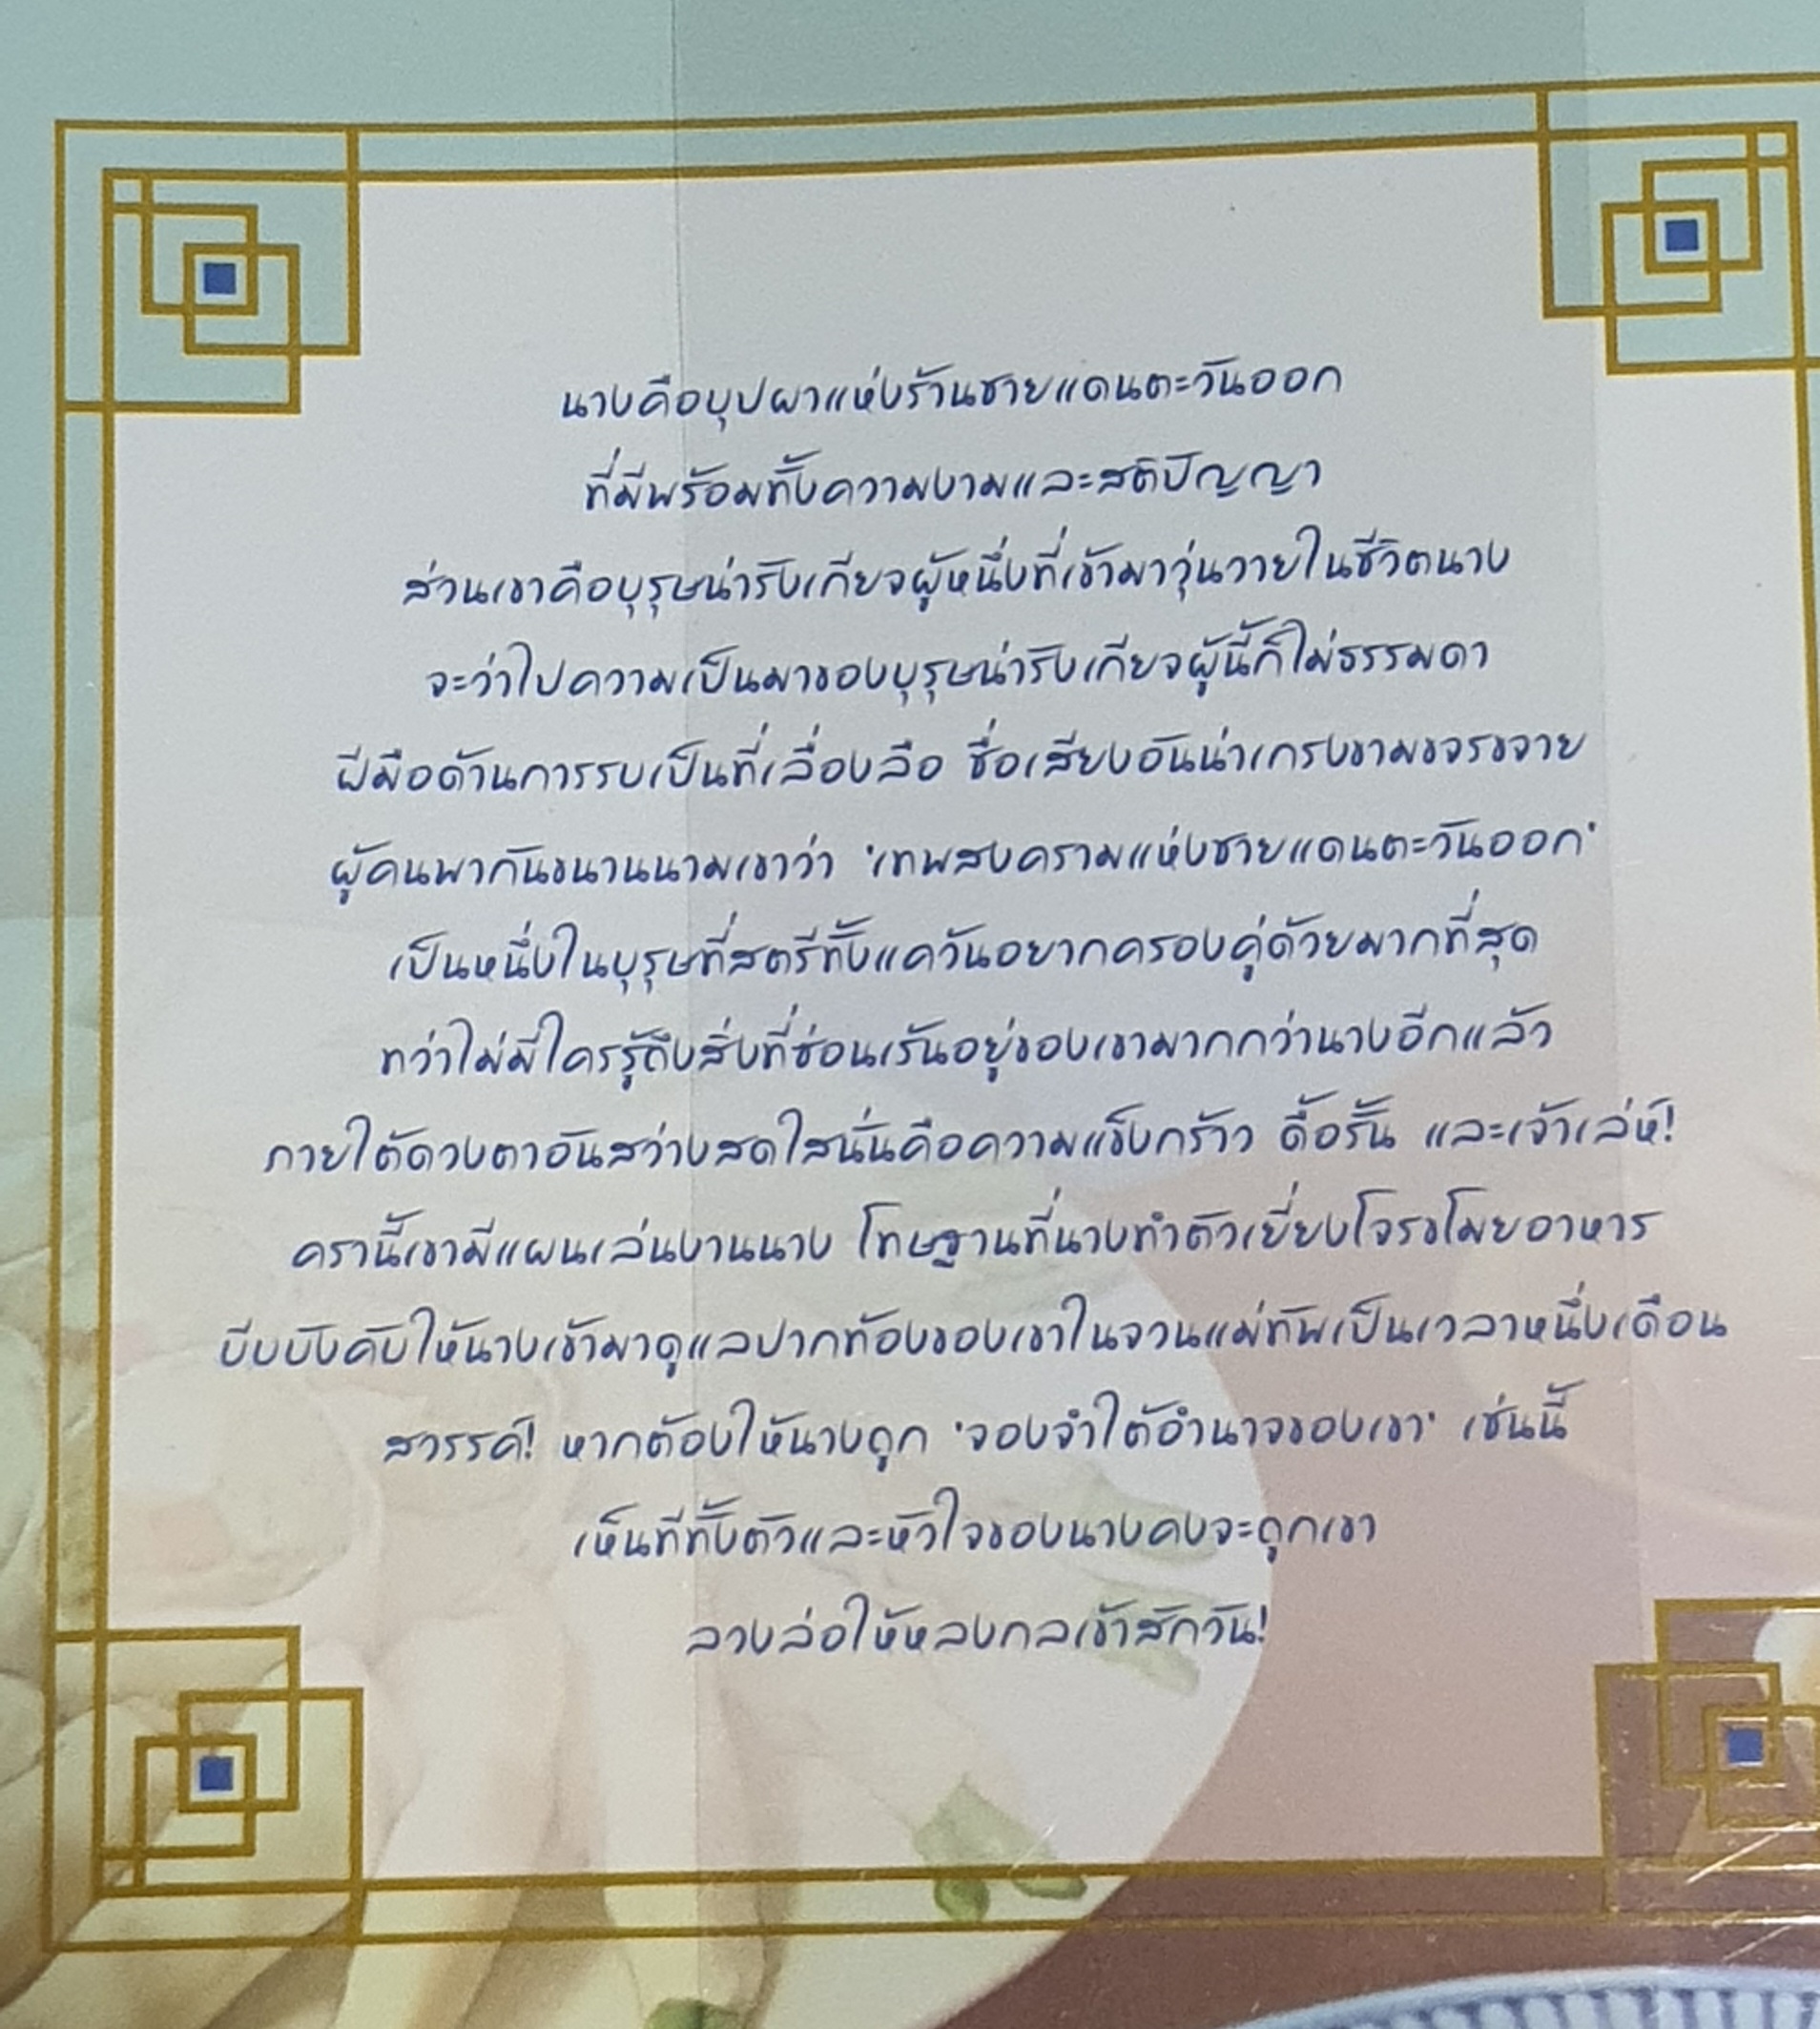 นางคือบุปผาแห่งร้านชายแดนตะวันออก
ที่มีพร้อมทั้งความงามและสติปัญญา
ส่วนเขาคือบุรุษน่ารังเกียจผู้หนึ่งที่เข้ามาวุ่นวายในชีวิตนาง
จะว่าไปความเป็นมาของบุรุษน่ารังเกียจผู้นี้ก็ไม่ธรรมดา
ฝีมือด้านการรบเป็นที่เลื่องลือ ชื่อเสียงอันน่าเกรงขามขจรขจาย
ผู้คนพากันขนานนามเขาว่า 'เทพสงครามแห่งชายแดนตะวันออก'
เป็นหนึ่งในบุรุษที่สตรีทั้งแคว้นอยากครองคู่ด้วยมากที่สุด
ทว่าไม่มีใครรู้ถึงสิ่งที่ซ่อนเร้นอยู่ของเขามากกว่านางอีกแล้ว
ภายใต้ดวงตาอันสว่างสดใสนั่นคือความแข็งกร้าว ดื้อรั้น และเจ้าเล่ห์!
ครานี้เขามีแผนเล่นงานนาง โทษฐานที่นางทำตัวเยี่ยงโจรขโมยอาหาร
บีบบังคับให้นางเข้ามาดูแลปากท้องของเขาในจวนแม่ทัพเป็นเวลาหนึ่งเดือน
สวรรค์! หากต้องให้นางถูก 'จองจำใต้อำนาจของเขา' เช่นนี้
เห็นทีทั้งตัวและหัวใจของนางคงจะถูกเขา
ลวงล่อให้หลงกลเข้าสักวัน!